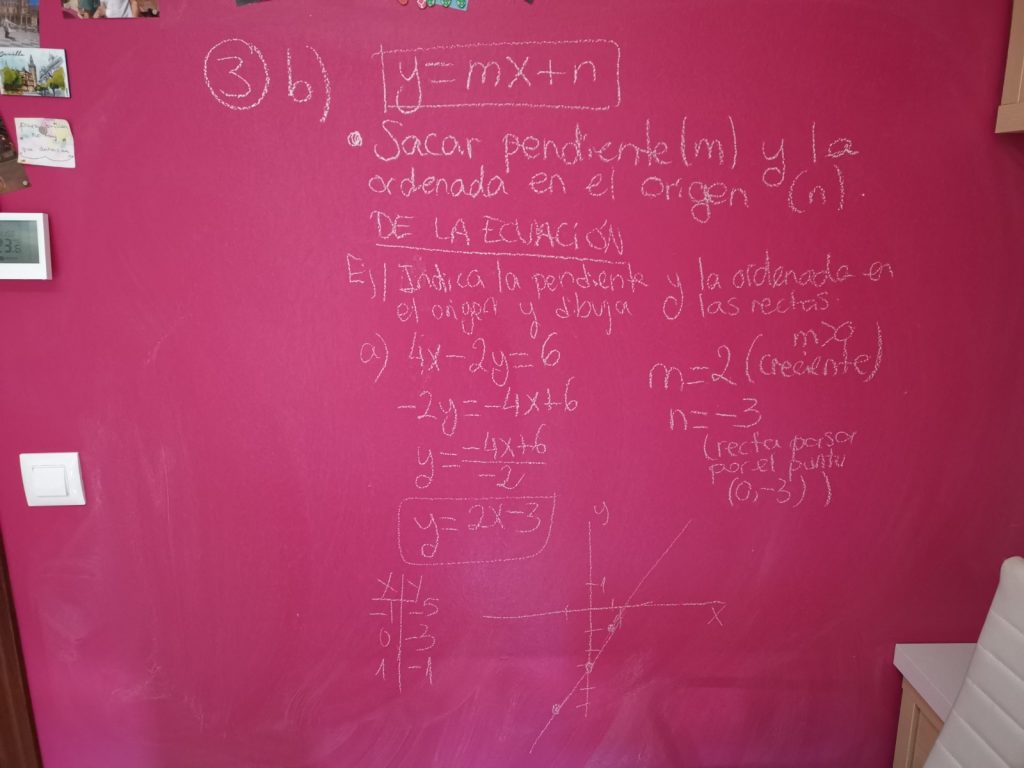 3 b) y=mx+n
• Sacar pendiente (m) y la
ordenada en el origen (n).
DE LA ECUACIÓN
Ej/ Indica la pendiente y la ordenada en
el origen y dibuja las rectas
a) 4x-2y=6
-2y=-4x+6
y=\frac{-4x+6}{-2}
y=2x-3
m>0
m=2 (creciente)
n=-3
(recta pasar
por el punto
(0,-3))
x | y
-1 | -5
0 | -3
1 | -1
y
1
x
23.8